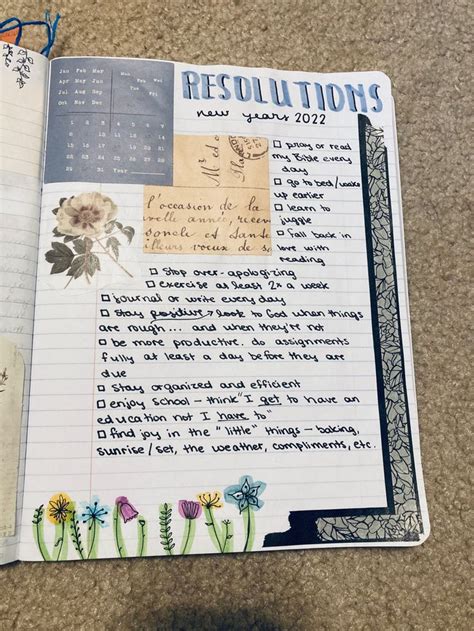 Jan Feb Mar
Apr May Jun
Jul Aug Sep
Oct Nov Dec
RESOLUTIONS
new years 2022
l'occasion de la
velle année, recev
illeurs voeux de
pray or read
my Bible every
day
go to bed/wake
up earlier
learn to
juggle
fall back in
love with
reading
stop over-apologizing
exercise at least 2x a week
journal or write every day
stay positive → look to God when things
are rough... and when they're not
be more productive. do assignments
fully at least a day before they are
due
stay organized and efficient
enjoy school - think "I get to have an
education not I have to"
find joy in the "little" things - baking,
sunrise/set, the weather, compliments, etc.